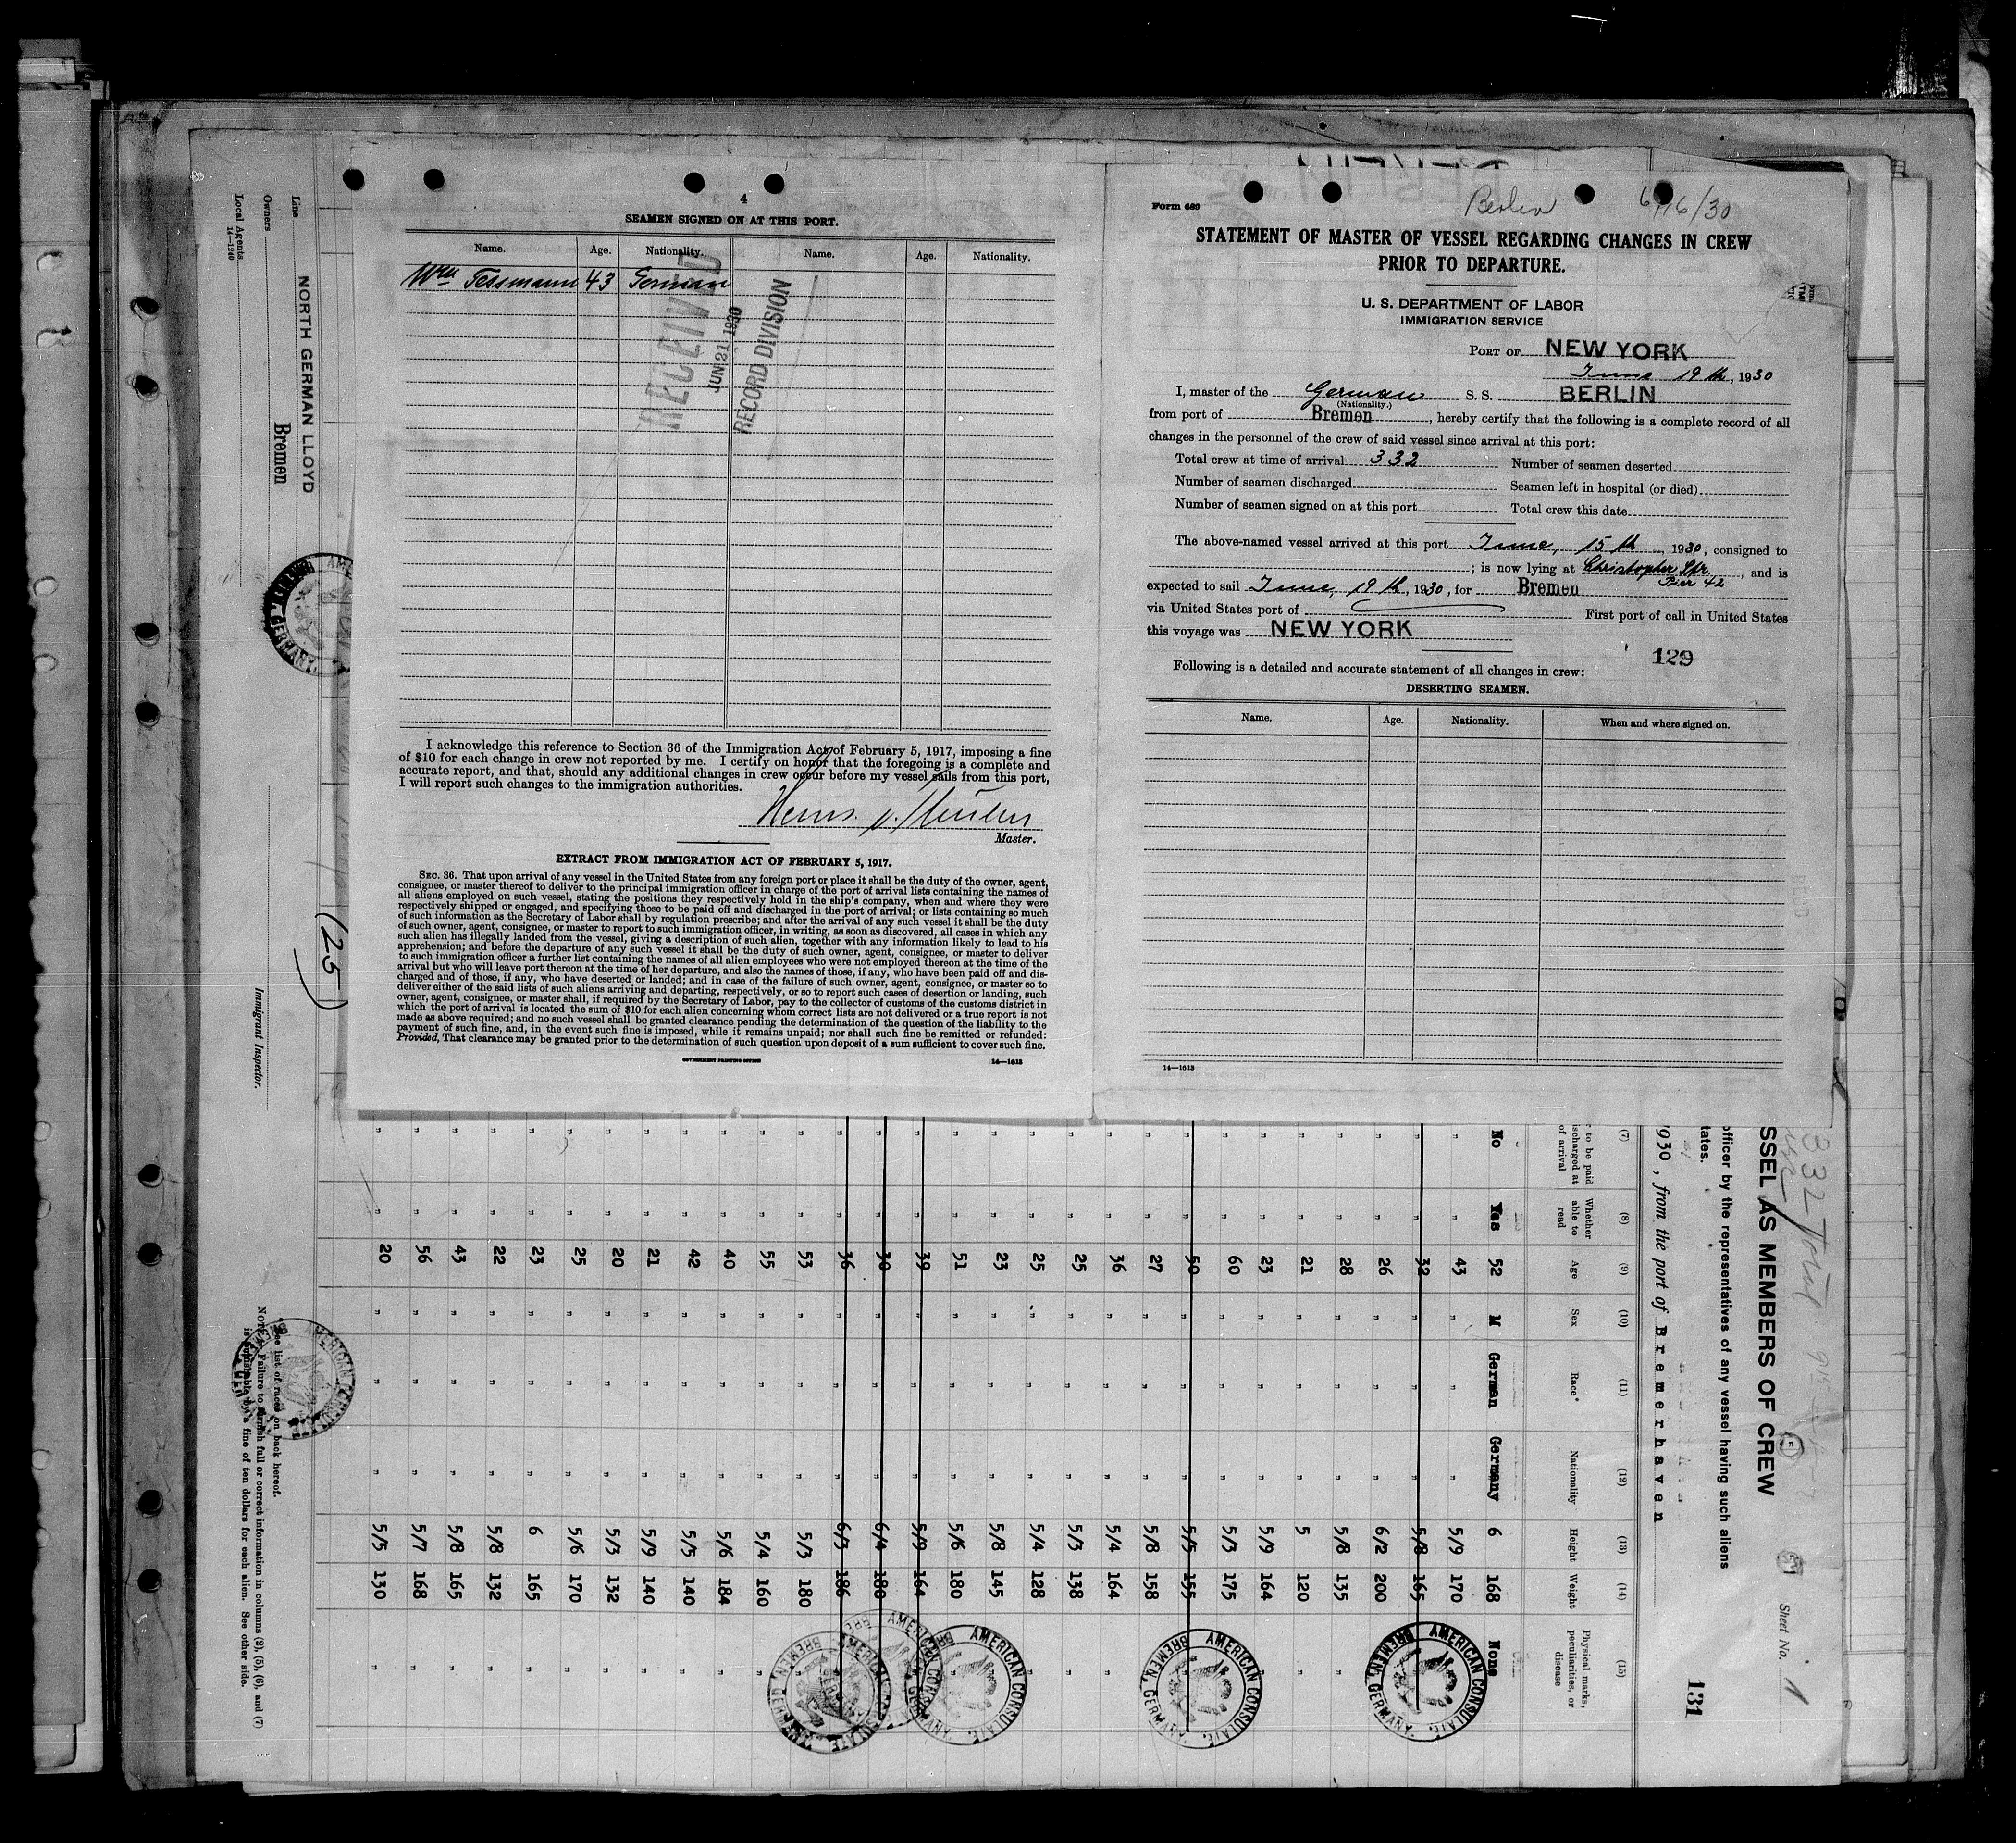 4
SEAMEN SIGNED ON AT THIS PORT.
Name. Age. Nationality. Name. Age. Nationality.
Wm Tessmann 43 German
RECEIVED
JUN 21 1930
RECORD DIVISION
I acknowledge this reference to Section 36 of the Immigration Act of February 5, 1917, imposing a fine
of $10 for each change in crew not reported by me. I certify on honor that the foregoing is a complete and
accurate report, and that, should any additional changes in crew occur before my vessel sails from this port,
I will report such changes to the immigration authorities.
Master.
EXTRACT FROM IMMIGRATION ACT OF FEBRUARY 5, 1917.
SEC. 36. That upon arrival of any vessel in the United States from any foreign port or place it shall be the duty of the owner, agent,
consignee, or master thereof to deliver to the principal immigration officer in charge of the port of arrival lists containing the names of
all aliens employed on such vessel, stating the positions they respectively hold in the ship's company, when and where they were
respectively shipped or engaged, and specifying those to be paid off and discharged in the port of arrival; or lists containing so much
of such information as the Secretary of Labor shall by regulation prescribe; and after the arrival of any such vessel it shall be the duty
of such owner, agent, consignee, or master to report to such immigration officer, in writing, as soon as discovered, all cases in which any
such alien has illegally landed from the vessel, giving a description of such alien, together with any information likely to lead to his
apprehension; and before the departure of any such vessel it shall be the duty of such owner, agent, consignee, or master to deliver
to such immigration officer a further list containing the names of all alien employees who were not employed thereon at the time of the
arrival but who will leave port thereon at the time of her departure, and also the names of those, if any, who have been paid off and dis-
charged and of those, if any, who have deserted or landed; and in case of the failure of such owner, agent, consignee, or master so to
deliver either of the said lists of such aliens arriving and departing, respectively, or so to report such cases of desertion or landing, such
owner, agent, consignee, or master shall, if required by the Secretary of Labor, pay to the collector of customs of the customs district in
which the port of arrival is located the sum of $10 for each alien concerning whom correct lists are not delivered or a true report is not
made as above required; and no such vessel shall be granted clearance pending the determination of the question of the liability to the
payment of such fine, and, in the event such fine is imposed, while it remains unpaid; nor shall such fine be remitted or refunded:
Provided, That clearance may be granted prior to the determination of such question upon deposit of a sum sufficient to cover such fine.
GOVERNMENT PRINTING OFFICE 14—1613
Form 689
Berlin 6/16/30
STATEMENT OF MASTER OF VESSEL REGARDING CHANGES IN CREW
PRIOR TO DEPARTURE.
U. S. DEPARTMENT OF LABOR
IMMIGRATION SERVICE
PORT OF NEW YORK
June 19th, 1930
I, master of the German S. S. BERLIN
(Nationality.)
from port of Bremen, hereby certify that the following is a complete record of all
changes in the personnel of the crew of said vessel since arrival at this port:
Total crew at time of arrival 332 Number of seamen deserted
Number of seamen discharged Seamen left in hospital (or died)
Number of seamen signed on at this port Total crew this date
The above-named vessel arrived at this port June, 15th, 1930, consigned to
; is now lying at Christopher Str. Pier 42, and is
expected to sail June, 19th, 1930, for Bremen
via United States port of First port of call in United States
this voyage was NEW YORK
129
Following is a detailed and accurate statement of all changes in crew:
DESERTING SEAMEN.
Name. Age. Nationality. When and where signed on.
14—1613
SSEL AS MEMBERS OF CREW
officer by the representatives of any vessel having such aliens
tates.
1930, from the port of Bremerhaven
332 Total
Sheet No. 1
131
(7) (8) (9) (10) (11) (12) (13) (14) (15)
r to be paid ischarged at of arrival
Whether able to read
Age
Sex
Race*
Nationality
Height
Weight
Physical marks, peculiarities, or disease
No Yes 52 M German Germany 6 168 None
" " 43 " " " 5/9 170
" " 32 " " " 5/8 165
" " 26 " " " 6/2 200
" " 28 " " " 5/8 135 "
" " 21 " " " 5 120 "
" " 23 " " " 5/9 164 "
" " 60 " " " 5/3 175
" " 50 " " " 5/5 155
" " 27 " " " 5/8 158
" " 36 " " " 5/4 164 "
" " 25 " " " 5/3 138 "
" " 25 " " " 5/4 128 "
" " 23 " " " 5/8 145
" " 51 " " " 5/6 180
" " 39 " " " 5/9 164
" " 30 " " " 6/4 180
" " 36 " " " 6/3 186
" " 53 " " " 5/3 180
" " 55 " " " 5/4 160 "
" " 40 " " " 5/6 184 "
" " 42 " " " 5/5 140 "
" " 21 " " " 5/9 140 "
" " 20 " " " 5/3 132 "
" " 25 " " " 5/6 170 "
" " 23 " " " 6 165 "
" " 22 " " " 5/8 132 "
" " 43 " " " 5/8 165 "
" " 56 " " " 5/7 168 "
" " 20 " " " 5/5 130 "
AMERICAN CONSULATE, BREMEN, GERMANY.
AMERICAN CONSULATE, BREMEN, GERMANY.
AMERICAN CONSULATE, BREMEN, GERMANY.
AMERICAN CONSULATE, BREMEN, GERMANY.
Line NORTH GERMAN LLOYD
Owners Bremen
Local Agents
14—1240
(25)
Immigrant Inspector.
*See list of races on back hereof.
NOTE.—Failure to furnish full or correct information in columns (2), (5), (6), and (7)
is punishable by a fine of ten dollars for each alien. See other side.